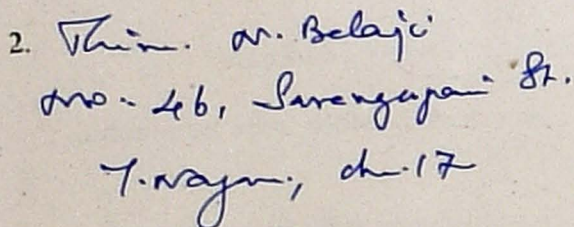 2. Thiru. N. Balaji
No. 46, Sarangapani St.
T. Nagar, ch. 17